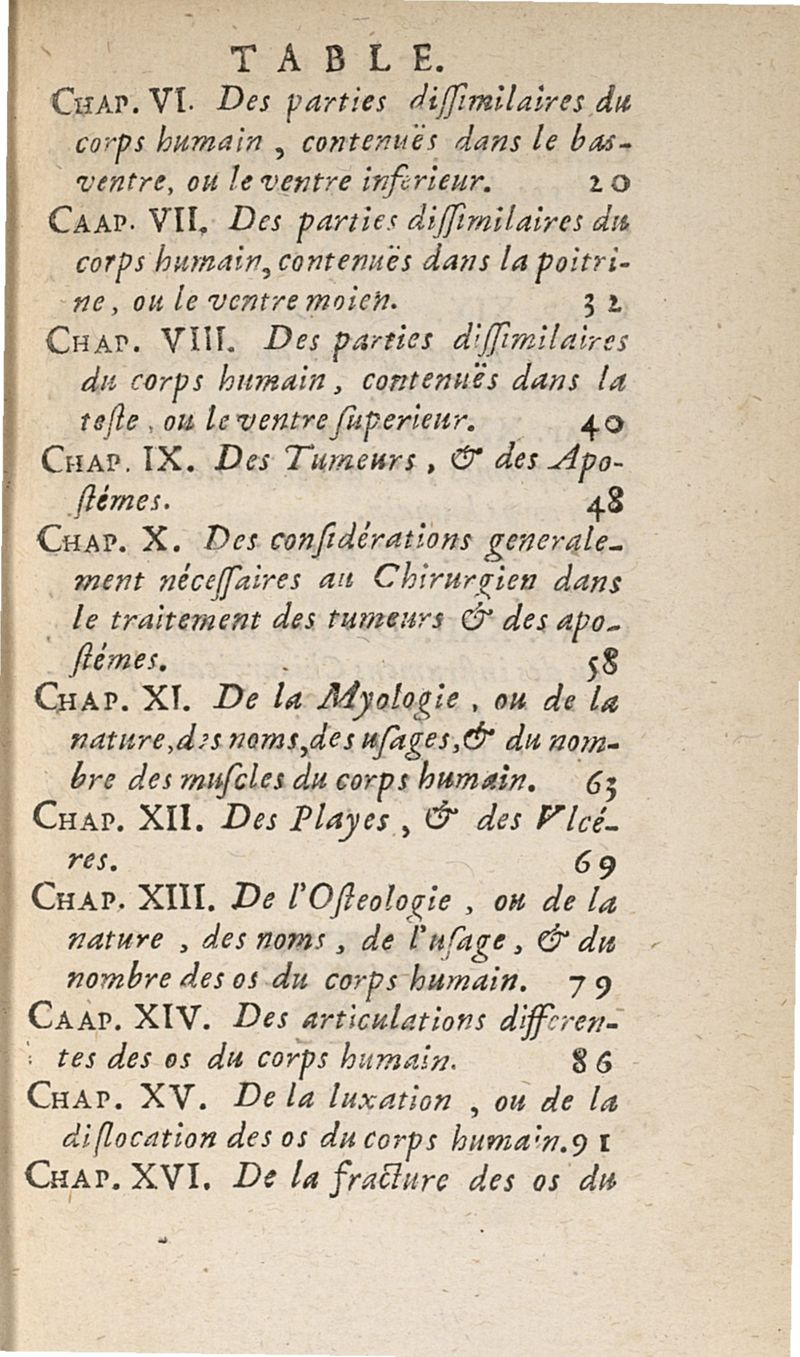 TABLE.
CHAP. VI. Des parties diſſimilaires du
corps humain, contenuës dans le bas-
ventre, ou le ventre inferieur. 20
CAAP. VII. Des parties diſſimilaires du
corps humain, contenuës dans la poitri-
ne, ou le ventre moien. 32
CHAP. VIII. Des parties diſſimilaires
du corps humain, contenuës dans la
teſte, ou le ventre ſuperieur. 40
CHAP. IX. Des Tumeurs, & des Apo-
ſtémes. 48
CHAP. X. Des conſidérations generale-
ment néceſſaires au Chirurgien dans
le traitement des tumeurs & des apo-
ſtémes. 58
CHAP. XI. De la Myologie, ou de la
nature, des noms, des uſages, & du nom-
bre des muſcles du corps humain. 63
CHAP. XII. Des Playes, & des Vlcé-
res. 69
CHAP. XIII. De l'Oſteologie, ou de la
nature, des noms, de l'uſage, & du
nombre des os du corps humain. 79
CAAP. XIV. Des articulations differen-
tes des os du corps humain. 86
CHAP. XV. De la luxation, ou de la
diſlocation des os du corps humain. 91
CHAP. XVI. De la fracture des os du